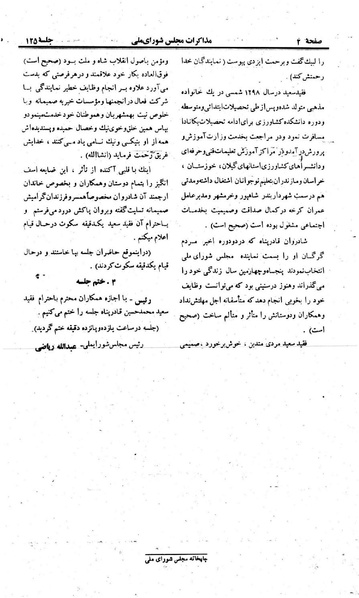 صفحهٔ ۴
مذاکرات مجلس شورای ملی
جلسهٔ ۱۲۵
را لبیک گفت و برحمت ایزدی پیوست (نمایندگان خدا
رحمتش کند).
فقید سعید در سال ۱۲۹۸ شمسی در یک خانواده
مذهبی متولد شد و پس از طی تحصیلات ابتدائی و متوسطه
و دوره دانشکده کشاورزی برای ادامه تحصیلات بکانادا
مسافرت نمود و در مراجعت بخدمت وزارت آموزش و
پرورش درآمد و در مراکز آموزش تعلیمات فنی و حرفه‌ای
و دانشسراهای کشاورزی استانهای گیلان، خوزستان،
خراسان و مازندران بتعلیم نوجوانان اشتغال داشته و مدتی
هم در سمت شهردار بندر شاهپور و خرمشهر و مدیرعامل
عمران کرخه در کمال صداقت و صمیمیت بخدمات
اجتماعی مشغول بوده است (صحیح است).
شادروان قادرپناه که در دو دوره اخیر مردم
گرگان او را بسمت نماینده مجلس شورای ملی
انتخاب نمودند پنجاه و چهارمین سال زندگی خود را
می‌گذراند و هنوز در سنینی بود که می‌توانست وظایف
خود را بخوبی انجام دهد که متأسفانه اجل مهلتش نداد
و همکاران و دوستانش را متأثر و متألم ساخت (صحیح
است).
فقید سعید مردی متدین، خوش‌برخورد، صمیمی
و مؤمن باصول انقلاب شاه و ملت بود (صحیح است)
فوق‌العاده بکار خود علاقمند و در هر فرصتی که بدست
می‌آورد علاوه بر انجام وظایف خطیر نمایندگی با
شرکت فعال در انجمنها و مؤسسات خیریه صمیمانه و با
خلوص نیت بهمشهریان و هموطنان خود خدمت مینمود و
بپاس همین خلق و خوی نیک و خصال حمیده و پسندیده‌اش
همه از او بنیکی و نیک نامی یاد می‌کنند، خدایش
غریق رحمت فرماید (انشاءالله).
اینک با قلبی آکنده از تأثر، این ضایعه اسف
انگیز را بتمام دوستان و همکاران و بخصوص خاندان
ارجمند آن شادروان مخصوصاً همسر و فرزندان گرامیش
صمیمانه تسلیت گفته و بروان پاکش درود می‌فرستم و
باحترام آن فقید سعید یکدقیقه سکوت در حال قیام
اعلام میکنم.
(در این موقع حاضران جلسه بپا خاستند و در حال
قیام یکدقیقه سکوت کردند).
۳ـ ختم جلسه
رئیس ـ با اجازه همکاران محترم باحترام فقید
سعید محمدحسین قادرپناه جلسه را ختم می‌کنیم.
(جلسه در ساعت پانزده و پانزده دقیقه ختم گردید)
رئیس مجلس شورایملی ـ عبدالله ریاضی
چاپخانه مجلس شورای ملی